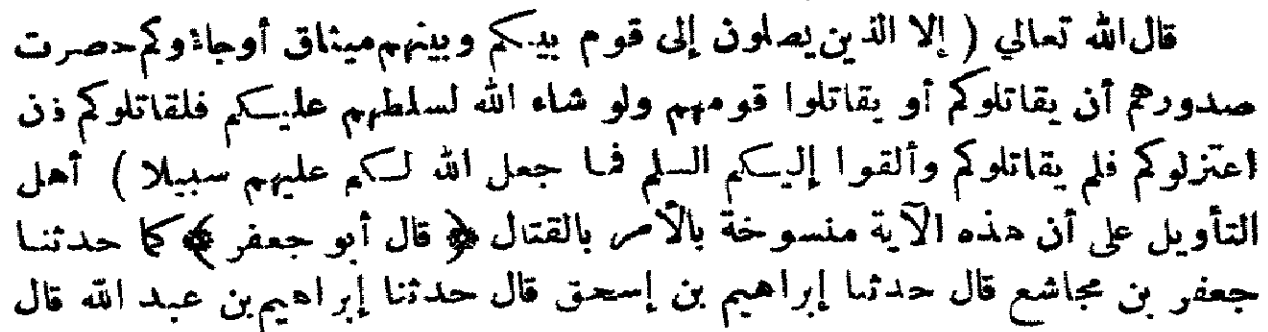 قال الله تعالي ( إلا الذين يصلون إلى قوم بيكم وبينهم ميثاق أوجاؤكم حصرت
صدورهم أن يقاتلوكم أو يقاتلوا قومهم ولو شاء الله لسلطهم عليكم فلقاتلوكم ذن
اعتزلوكم فلم يقاتلوكم وألقوا إليكم السلم فما جعل الله لكم عليهم سبيلا ) أهل
التأويل على أن هذه الآية منسوخة بالأمر بالقتال ﴿ قال أبو جعفر ﴾ كما حدثنا
جعفر بن مجاشع قال حدثنا إبراهيم بن إسحق قال حدثنا إبراهيم بن عبد الله قال